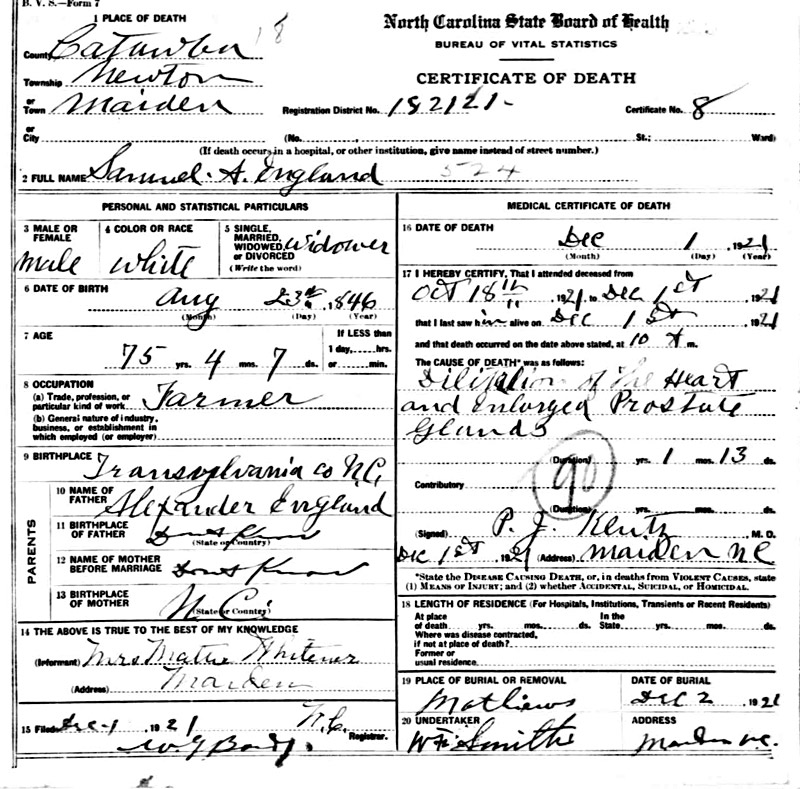 B. V. S.—Form 7
North Carolina State Board of Health
BUREAU OF VITAL STATISTICS
CERTIFICATE OF DEATH
1 PLACE OF DEATH
County Catawba 18
Township Newton
or Town Maiden
Registration District No. 182121-
Certificate No. 8
or City
(No. St.; Ward)
(If death occurs in a hospital, or other institution, give name instead of street number.)
2 FULL NAME Samuel A. England 524
PERSONAL AND STATISTICAL PARTICULARS
3 MALE OR FEMALE
male
4 COLOR OR RACE
white
5 SINGLE, MARRIED, WIDOWED OR DIVORCED
(Write the word)
Widower
6 DATE OF BIRTH Aug 23rd, 1846
(Month) (Day) (Year)
7 AGE
75 yrs. 4 mos. 7 ds.
If LESS than
1 day, hrs.
or min.
8 OCCUPATION
(a) Trade, profession, or
particular kind of work Farmer
(b) General nature of industry,
business, or establishment in
which employed (or employer)
9 BIRTHPLACE Transylvania co N.C.
PARENTS
10 NAME OF FATHER Alexander England
11 BIRTHPLACE OF FATHER Dont Know
(State or Country)
12 NAME OF MOTHER BEFORE MARRIAGE Dont Know
13 BIRTHPLACE OF MOTHER N.C.
(State or Country)
14 THE ABOVE IS TRUE TO THE BEST OF MY KNOWLEDGE
(Informant) Mrs Mattie Whitener
(Address) Maiden
N.C.
15 Filed Dec-1 1921
Registrar.
MEDICAL CERTIFICATE OF DEATH
16 DATE OF DEATH
Dec 1, 1921
(Month) (Day) (Year)
17 I HEREBY CERTIFY, That I attended deceased from
Oct 18th, 1921, to Dec 1st, 1921
that I last saw him alive on Dec 1st, 1921
and that death occurred on the date above stated, at 10 m.
The CAUSE OF DEATH* was as follows:
Dilitation of the Heart
and enlarged Prostate
Glands
90
(Duration) yrs. 1 mos. 13 ds.
Contributory
(Duration) yrs. mos. ds.
(Signed) P. J. Klutz M. D.
Dec 1st, 1921 (Address) Maiden NC
*State the DISEASE CAUSING DEATH, or, in deaths from VIOLENT CAUSES, state
(1) MEANS OF INJURY; and (2) whether ACCIDENTAL, SUICIDAL, or HOMICIDAL.
18 LENGTH OF RESIDENCE (For Hospitals, Institutions, Transients or Recent Residents)
At place of death yrs. mos. ds. In the State yrs. mos. ds.
Where was disease contracted,
if not at place of death?
Former or
usual residence.
19 PLACE OF BURIAL OR REMOVAL
Mathews
DATE OF BURIAL
Dec 2, 1921
20 UNDERTAKER
Smith
ADDRESS
Maiden N.C.